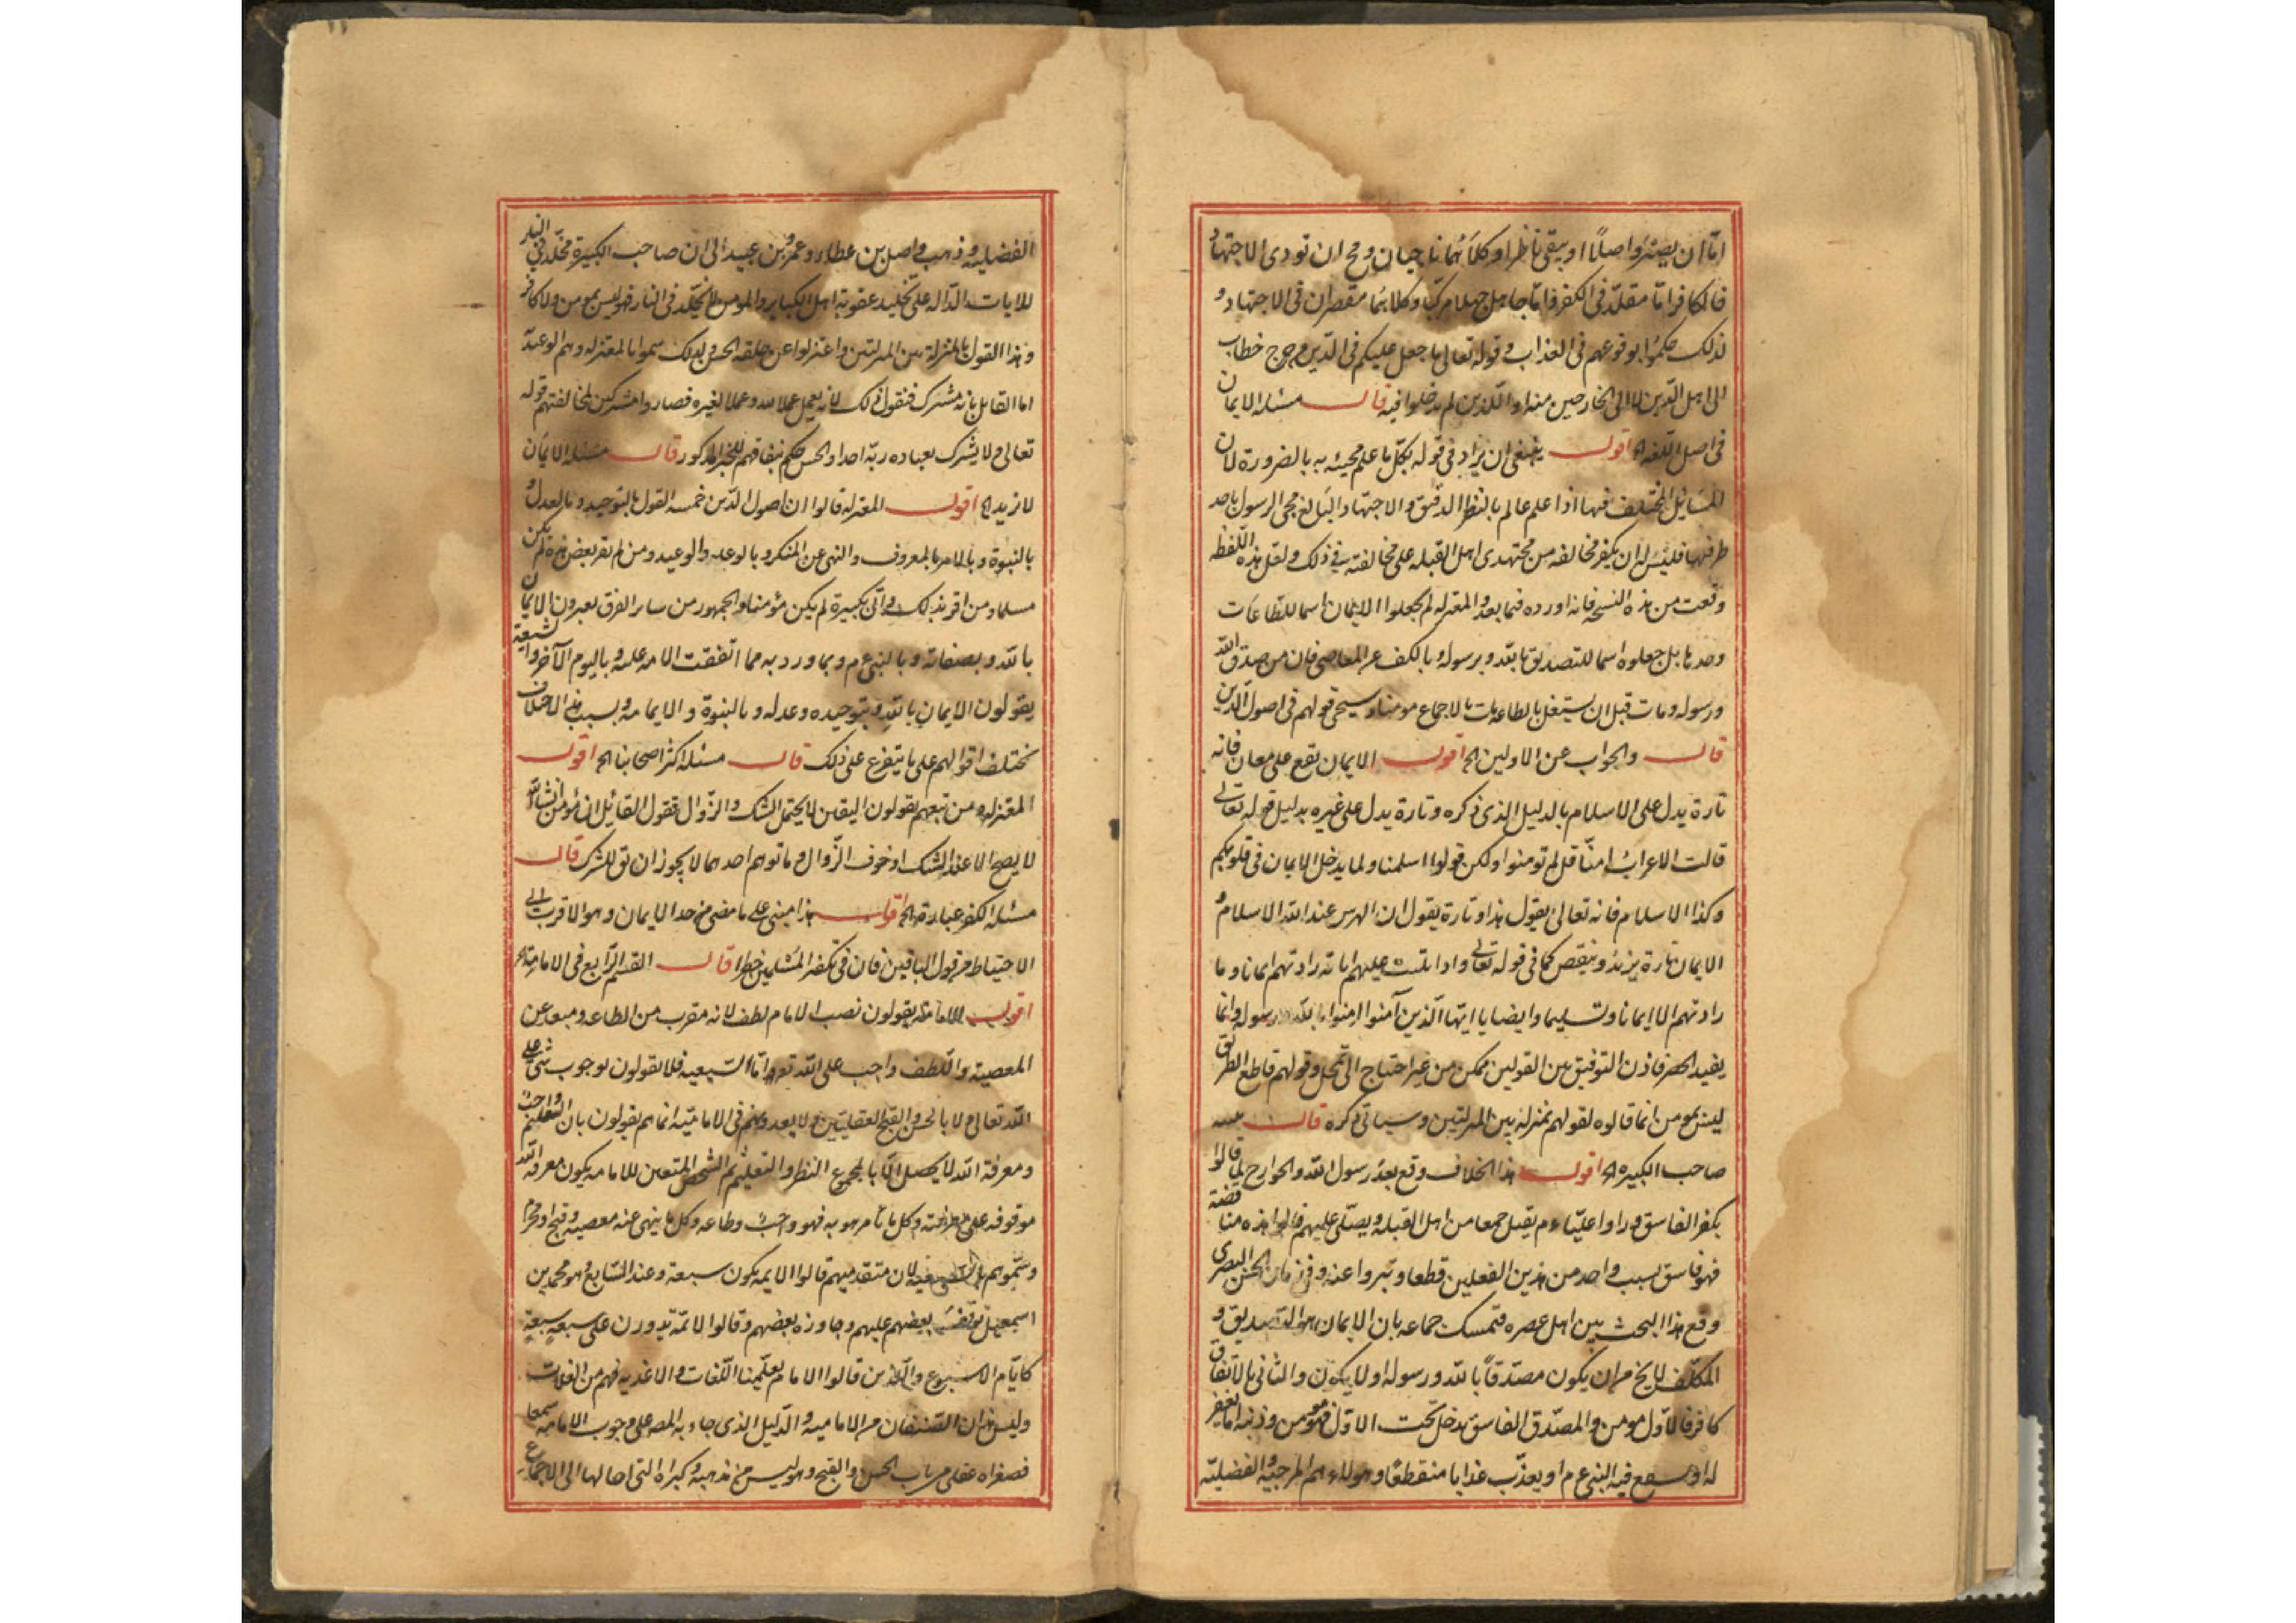 اما ان يصير واصلا او يبقى ناظرا وكلاهما ناجيان ومح ان تودى الاجتهاد
فالكافر اما مقلد فى الكفر واما جاهل جهلا مركبا وكلاهما مقصران فى الاجتهاد و
لذلك حكموا بوقوعهم فى العذاب وقوله تعالى ما جعل عليكم فى الدين من حرج خطاب
الى اهل الدين لا الى الخارجين منه او الذين لم يدخلوا فيه قال مسئله الايمان
فى اصل اللغه الخ اقول ينبغى ان يزاد فى قوله بكل ما علم مجيئه به بالضرورة لان
المسائل المختلف فيها اذا علم عالم بالنظر الدقيق والاجتهاد البالغ مجى الرسول باحد
طرفيها فليس له ان يكفر مخالفه من مجتهدى اهل القبله على مخالفته فى ذلك ولعل هذه اللفظه
وقعت من هذه النسخه فانه اورده فيما بعد والمعتزله لم يجعلوا الايمان اسما للطاعات
وحدها بل جعلوه اسما للتصديق بالله وبرسوله وبالكف عن المعاصى فان من صدق الله
ورسوله ومات قبل ان يستغل بالطاعات مات بالاجماع مومنا وسيجى قولهم فى اصول الدين
قال والجواب عن الاولين الخ اقول الايمان يقع على معان فانه
تارة يدل على الاسلام بالدليل الذى ذكره وتارة يدل على غيره بدليل قوله تعالى
قالت الاعراب امنا قل لم تومنوا ولكن قولوا اسلمنا ولما يدخل الايمان فى قلوبكم
وكذا الاسلام فانه تعالى يقول هذا وتارة يقول ان الدين عند الله الاسلام و
الايمان تارة يزيد وينقص كما فى قوله تعالى واذا تليت عليهم اياته زادتهم ايمانا وما
زادتهم الا ايمانا وتسليما وايضا يا ايها الذين آمنوا امنوا بالله ورسوله وانما
يفيد الحصر فاذن التوفيق بين القولين ممكن من غير احتياج الى تمحل وقولهم قاطع الطريق
ليس بمومن انما قالوه لقولهم بمنزلة بين المنزلتين وسياتى ذكره قال مسئله
صاحب الكبيره الخ اقول هذا الخلاف وقع بعد رسول الله والخوارج لما قالوا
بكفر الفاسق وراوا عليا ء م يقتل جمعا من اهل القبله ويصلى عليهم قالوا هذه مناقضة
فهو فاسق بسبب واحد من هذين الفعلين قطعا وتبروا عنه وفى زمان الحسن البصرى
وقع هذا البحث بين اهل عصره فتمسك جماعه بان الايمان هو التصديق و
المكلف لا يخ من ان يكون مصدقا بالله ورسوله او لا يكون والثانى بالاتفاق
كافر فالاول مومن والمصدق الفاسق يدخل تحت الاول فهو مومن وذنبه اما يغفر
له او يشفع فيه النبى ع م او يعذب عذابا منقطعا وهولاء هم المرجية الفضيلية
الفضيليه وذهب واصل بن عطاء وعمرو بن عبيد الى ان صاحب الكبيرة مخلد فى النار
للايات الداله على تخليد عقوبة اهل الكباير والمومن لا يخلد فى النار فهو ليس بمومن ولا كافر
وهذا القول بالمنزلة بين المنزلتين واعتزلوا عن حلقة الحسن ولذلك سموا بالمعتزله وهم الوعيدية
اما القائل بانه مشرك فنقول ذلك لانه يعمل عملا لله وعملا لغيره فصاروا مشركين لمخالفتهم قوله
تعالى ولا يشرك بعبادة ربه احدا والحسن حكم بنفاقهم للخبر المذكور قال مسئله الايمان
لا يزيد الخ اقول المعتزله قالوا ان اصول الدين خمسه القول بالتوحيد وبالعدل و
بالنبوة وبالامر بالمعروف والنهى عن المنكر وبالوعد والوعيد ومن لم يقر ببعض هذه لم يكن
مسلما ومن اقر بذلك واتى بكبيرة لم يكن مؤمنا والجمهور من ساير الفرق يعبرون الايمان
بالله وبصفاته وبالنبى ع م وبما ورد به مما اتفقت الامه عليه وباليوم الآخر والشيعة
يقولون الايمان بالله وبتوحيده وعدله وبالنبوة والامامه وبسبب هذا الخلاف
تختلف اقوالهم على ما يتفرع على ذلك قال مسئله اكثر اصحابنا الخ اقول
المعتزله ومن تبعهم يقولون اليقين لا يحتمل الشك والزوال فقول القائل انا مؤمن انشاالله
لا يصح الا عند الشك او خوف الزوال وما توهم احدهما لا يجوز ان يق للشرك قال
مسئله الكفر عبارة الخ اقول هذا مبنى على ما مضى من حد الايمان وهو الاقرب الى
الاحتياط من قول الباقين فان فى تكفير المسلمين خطرا قال القسم الرابع فى الامامة الخ
اقول الاماميه يقولون نصب الامام لطف لانه مقرب من الطاعه ومبعد عن
المعصيه واللطف واجب على الله تعالى واما السبعيه فلا يقولون بوجوب شى على
الله تعالى ولا بالحسن والقبح العقليين ولا يعدونهم فى الاماميه انما هم يقولون بان التعليم واجب
ومعرفة الله لا يحصل الا بالمجموع النظر والتعليم ثم الشخص المتعين للامامه يكون معرفة الله
موقوفه على معرفته وكل ما يامر هو به فهو واجب وطاعه وكل ما ينهى عنه معصية وقبح او محرم
وسموهم بالسبعيه لان متقدميهم قالوا الايمه يكون سبعة وعند السابع هو محمد بن
اسمعيل توقف بعضهم عليهم وجاوزه بعضهم وقالوا الائمة يدورن على سبعة سبعة
كايام الاسبوع والذين قالوا الامام يعلمنا اللغات والاغذيه فهم من الغلات
وليس هذان الصنفان من الاماميه والدليل الذى جاء به المص على وجوب الامامه سمعا
فصغراه عقلى من باب الحسن والقبح وهو ليس من مذهبه وكبراه التى احالها الى الاجماع